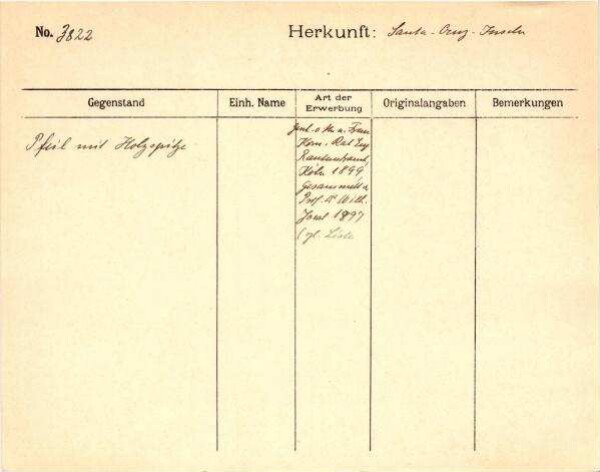 No. 3822
Herkunft: Santa-Cruz-Inseln
Gegenstand
Einh. Name
Art der
Erwerbung
Originalangaben
Bemerkungen
Pfeil mit Holzspitze
u. Frau
Kom. Rat Eug
Rautenstrauch,
Köln 1899,
Gesammelt v.
Prof. Dr Wilh.
Joest 1897
(vgl. Liste